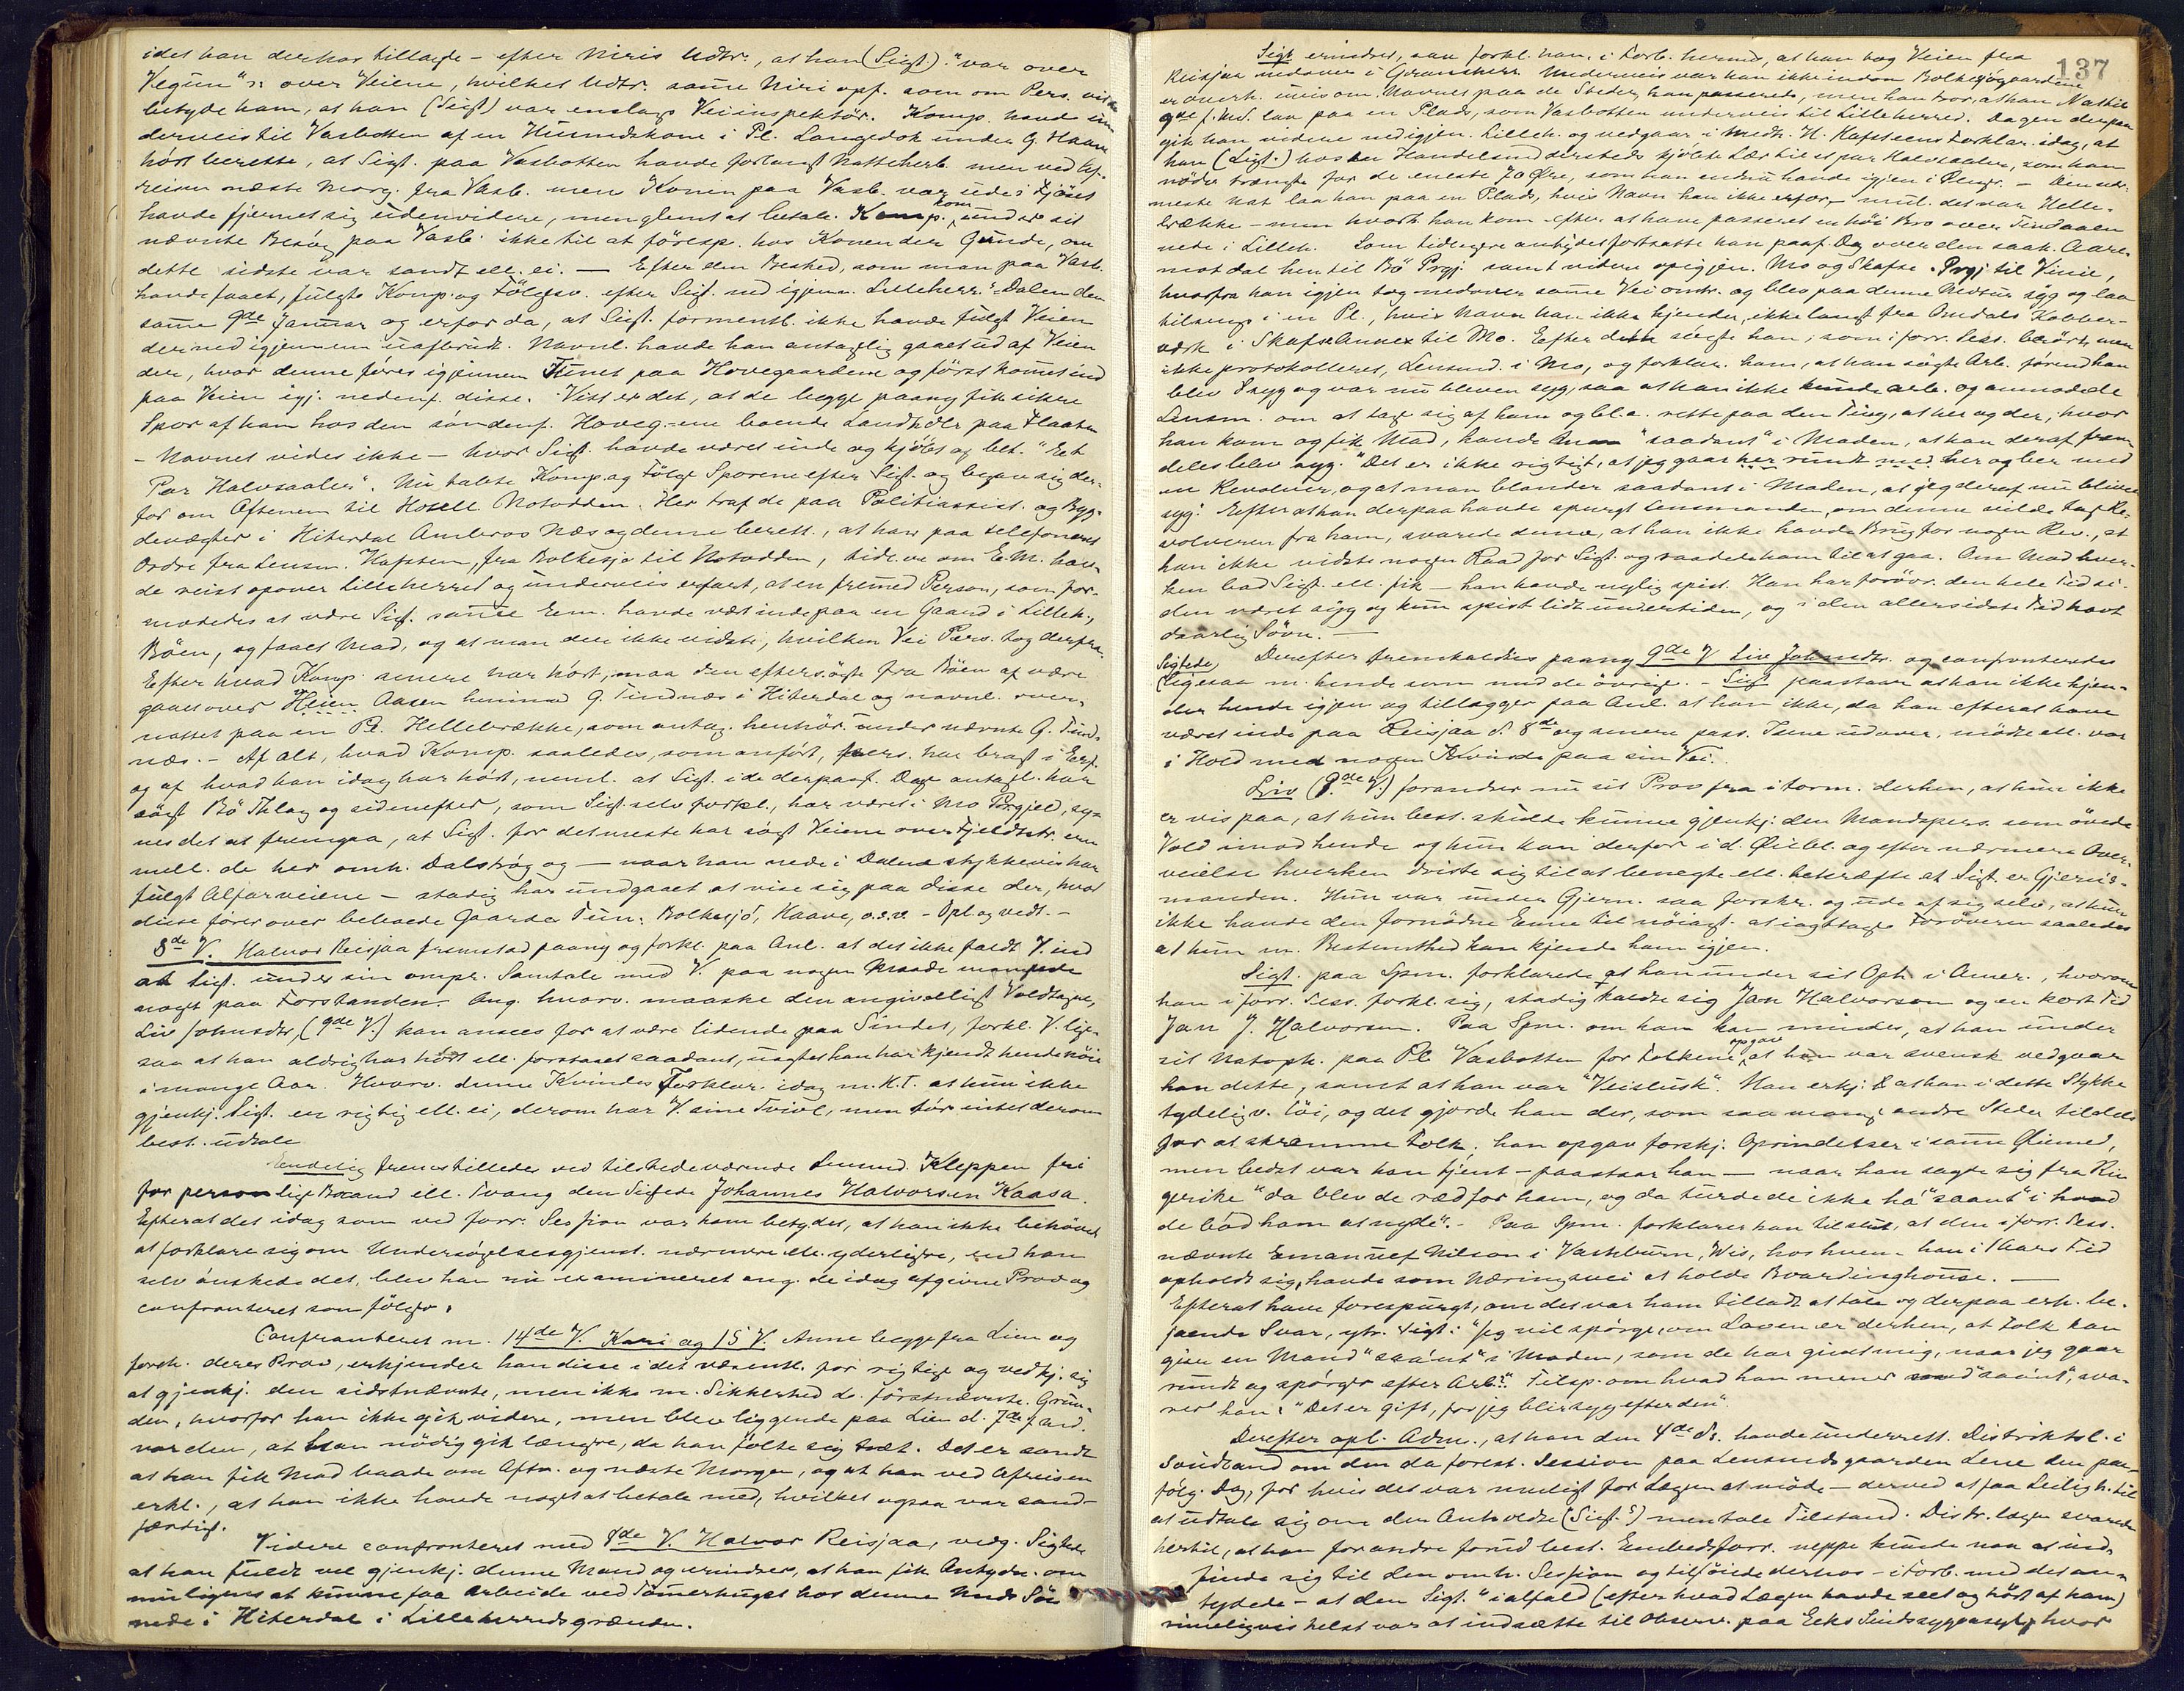 idet han derhos tillagde - efter Niris Udtr., at han (Sigt) "var over
Vegun" ɔ: over Veiene, hvilket Udtr. same Niri opf. som om Pers. vilde
betyde ham, at han (Sigt) var enslags Veiinspektör. Komp. havde un-
derveis til Vasbotten af en Huusmdskone i Pl. Langedok under G. Haave
hört berette, at Sigt. paa Vasbotten havde forlangt Natteherb. men ved Af-
reisen næste Morg. fra Vasb. men Konen paa Vasb. var ude i Fjöset
havde fjernet sig udenvidere, men glemt at betale. Komp. kom under sit
nævnte Besög paa Vasb. ikke til at föresp. hos Konen der Gunde, om
dette sidste var sandt ell. ei. — Efter den Besked, som man paa Vasb.
havde faaet, fulgte Komp. og Fölgesv. efter Sigt. ned igjenn. Lilleherr.-Dalen den
same 9de Januar og erfor da, at Sigt. formentl. ikke havde fulgt Veien
derned igjennem uafbrudt. Navnl. havde han antagelig gaaet ud af Veien
der, hvor denne föres igjennem Tunet paa Hovegaardene og först komet ind
paa Veien igj. nedenf. disse. Vist er det, at de begge paany fik sikre
Spor af ham hos den söndenf. Hoveg.ene boende Landhdlr paa Flaaten
- Navnet vides ikke - hvor Sigt. havde været inde og kjöbt og bet. "Et
Par Halvsaaler". Nu tabte Komp. og Fölge Sporene efter Sigt. og begav sig der-
for om Aftenen til Hotell Notodden. Her traf de paa Politiassist. og Byg-
devægter i Hiterdal Ambros Næs og denne berett., at han paa telefoneret
Ordre fra Lensm. Kafsten, fra Bolkesjö til Notodden, tidl. ve om E.M. hav-
de reist opover Lilleherred og underveis erfaret, at en fremed Person, som for-
modedes at være Sigt. same Em. havde vært inde paa en Gaard i Lilleh.,
Böen, og faaet Mad, og at man der ikke vidste, hvilken Vei Pers. tog derfra.
Efter hvad Komp. senere har hört, maa den eftersögte fra Böen af være
gaaet over Heien Aasen henimod G. Tindnæs i Hiterdal og navnl. over-
nattet paa en Pl. Hellebrække, som antag. henhör. under nævnte G. Tind-
næs. - Af alt, hvad Komp. saaledes, som anfört, pers. har bragt i Erf.
og af hvad han idag har hört, neml. at Sigt. i de derpaaf. Dage antagl. har
sögt Bö Thlag og sidenefter, som Sigt. selv forkl., har været i Mo Prgjeld, sy-
nes det at fremgaa, at Sigt. for det meste har sögt Veiene over Fjeldstr. em
mell. de her omh. Dalströg og — naar han nede i Dalene stykkevis har
fulgt Alfarveiene - stadig har undgaaet at vise sig paa disse der, hvor
disse förer over beboede Gaardes Tun: Bolkesjö, Haave, o.s.v. - Opl og vedt. -
8de V. Halvor Reisjaa fremstod paany og forkl. paa Anl. at det ikke faldt V. ind
at Sigt. under sin ompr. Samtale med V. paa nogen Maade manglede
noget paa Forstanden. Ang. hvorv. maaske den angivelligt Voldtagne,
Liv Johnsdtr, (9de V.) kan ansees for at være lidende paa Sindet, forkl. V. lige-
saa at han aldrig har hört ell. forstaaet saadant, uagtet han har kjendt hende nöie
i mange Aar. Hvorv. denne Kvindes Forklar. idag m. H.T. at hun ikke
gjenkj. Sigt. er rigtig ell. ei, derom har V. sine Tvivl, men tör intet derom
best. udtale
Endelig fremstilledes ved tilstedeværende Lensmd. Kleppen fri
for personligt Baand ell. Tvang den Sigtede Johannes Halvorsen Kaasa.
Efterat det idag som ved forr. Session var ham betydet, at han ikke behöved
at forklare sig om Undersögelsesgjenst. nærmere ell. yderligere, end han
selv önskede det, blev han nu examineret ang. de idag afgivne Prov og
confronteret som fölger:
Confronteret m. 14de V. Kari og 15 V. Anne begge fra Lien og
foreh. deres Prov, erkjender han disse i det væsentl. for rigtige og vedkj. sig
at gjenkj. den sidstnævnte, men ikke m. Sikkerhed d. förstnævnte. Grun-
den, hvorfor han ikke gik videre, men blev liggende paa Lien d. 7de f. md.
var den, at han nödig gik længre, da han fölte sig træt. Det er sandt
at han fik Mad baade om Aftn. og næste Morgen, og at han ved Afreisen
erkl., at han ikke havde noget at betale med, hvilket ogsaa var sand-
færdigt.
Videre confronteret med 8de V. Halvor Reisjaa, vedg. Sigtede
at han fuldt vel gjenkj. denne Mand og erindrer, at han fik Antydn. om
muligens at kunne faa Arbeide ved Tömerhugst hos denne Mds Sön
nede i Hiterdal i Lilleherredsgrænden.
137
Sigt erindrer, saa forkl. han i Forb. hermed, at han tog Veien fra
Reisjaa nedover i Gransherr. Underveis var han ikke indom Bolkesjögaardene
er overh. uvis om Navnet paa de Steder, han passerede, men han tror, at han Nat til
9de f. Md. laa paa en Plads, som Vasbotten underveis til Lilleherred. Dagen derpaa
gik han videre ned igjen. Lilleh. og vedgaar i Medh. H. Kafsteens Forklar. idag, at
han (Sigt.) hos en Handelsmd dersteds kjöbte Lær til et par Halvsaaler, som han
nödv. trængte for de eneste 70 Öre, som han endnu havde igjen i Penge. - Den næ-
meste Nat laa han paa en Plads, hvis Navn han ikke erfor, - mul. det var Helle-
brække - men hvorh. han kom efter at have passeret en höi Bro over Tindaaen
nede i Lilleh. Som tidligere antydet fortsatte han paaf. Dag over den saak. Aare-
mot dal hen til Bö Prgj. samt videre opigjen. Mo og Skafse Prgj til Vinie,
hvorfra han igjen tog nedover same Vei omtr. og blev paa denne Nedtur syg og laa
tilsengs i en Pl., hvis Navn han ikke kjender, ikke langt fra Omdals Kobber-
værk i Skafse Annex til Mo. Efter dette sögte han, som i forr. Sess. berört, men
ikke protokolleret, Lensmd. i Mo, og forklar. ham, at han sögte Arb. förend han
blev Syg og var nu bleven syg, saa at han ikke kunde arb. og anmodede
Lensm. om at tage sig af ham og bl.a. rette paa den Ting, at her og der, hvor
han kom og fik Mad, havde man "saadant" i Maden, at han deraf frem-
deles blev syg. "Det er ikke rigtigt, at jeg gaar her rundt med her og ber med
en Revolver, og at man blander saadant i Maden, at jeg deraf nu bliver
syg." Efterat han derpaa havde spurgt Lensmanden, om denne vilde tage Re-
volveren fra ham, svarede denne, at han ikke havde Brug for nogen Rev., at
han ikke vidste nogen Raad for Sigt. og raadede ham til at gaa. Om Mad hver-
ken bad Sigt. ell. fik - han havde nylig spist. Han har forövr. den hele Tid si-
den været syg og kun spist lidt undertiden, og i den allersidste Tid havt
daarlig Sövn. —
Sigtede, Derefter fremkaldtes paany 9de V Liv Johnsdtr. og confronteredes
(ligesaa m. hende som med de övrige. - Sigt paastaar at han ikke kjen-
der hende igjen og tillægger paa Anl. at han ikke, da han efterat have
været inde paa Reisjaa d. 8de og senere pass. Tune udover, mödte ell. var
i Hold med nogen Kvinde paa sin Vei.
Liv (9de V.) forandrer nu sit Prov fra i form. derhen, at hun ikke
er vis paa, at hun best. skulde kunne gjenkj. den Mandspers. som övede
Vold imod hende og hun kan derfor i d. Öiebl. og efter nærmere Over-
veielse hverken driste sig til at benegte ell. bekræfte at Sigt. er Gjernings-
manden. Hun var under Gjern. saa forskr. og ude af sig selv, at hun
ikke havde den fornödne Evne til nöiagt. at iagttage Foröveren saaledes
at hun m. Bestemthed kan kjende ham igjen.
Sigt. paa Spm. forklarede at han under sit Oph. i Amer., hvorom
han i forr. Sess. forkl. sig, stadig kaldte sig Jan Halvorson og en kort Tid
Jan J. Halvorsen. Paa Spm. om han kan mindes, at han under
sit Natoph. paa Pl. Vasbotten for Folkene opgav at han var svensk vedgaar
han dette, samt at han var "Veislusk". Han erkj. at han i dette Stykke
tydeligv. löi, og det gjorde han der, som saa mange andre Steder tildels
for at skræmme Folk; han opgav forskj. Oprindelser i same Öiemed,
men bedst var han tjent - paastaar han — naar han sagde sig fra Rin
gerike "da blev de ræd for ham, og da turde de ikke ha' "saant" i hvad
de böd ham at nyde". - Paa Spm. forklarer han tilslut, at den i forr. Sess.
nævnte Emanuel Nilson i Vashburn, Wis, hos hvem han i 1 Aars Tid
opholdt sig, havde som Næringsvei at holde Boardinghouse. —
Efterat have forespurgt, om det var ham tilladt at tale og derpaa erh. be-
jaende Svar, ytr. Sigt: "Jeg vil spörge, om Loven er derhen, at Folk kan
give en Mand "saánt" i Maden, som de har givet mig, naar jeg gaar
rundt og spörger efter Arb.?" Tilsp. om hvad han mener med "saánt", sva-
rer han: "Det er gift, for jeg blir syg efter den".
Derefter opl. Adm., at han den 4de ds. havde underrett. Distriktsl. i
Söudland om den da forest. Session paa Lensmdsgaarden Lene den paa-
fölg. Dag, for hvis det var muligt for Lægen at möde - derved at faa Leiligh. til
at udtale sig om den Anholdte (Sigt.s) mentale Tilstand. Distr. lægen svarede
hertil, at han for andre forud best. Embedsforr. neppe kunde naa at ind-
finde sig til den omh. Session og tilföiede derhos - i Forb. med det an-
tydede - at den Sigt. "ialfald (efter hvad Lægen havde seet og hört af ham)
rimeligvis helst var at indsætte til Observ. paa Eeks Sindssygeasyl, hvor